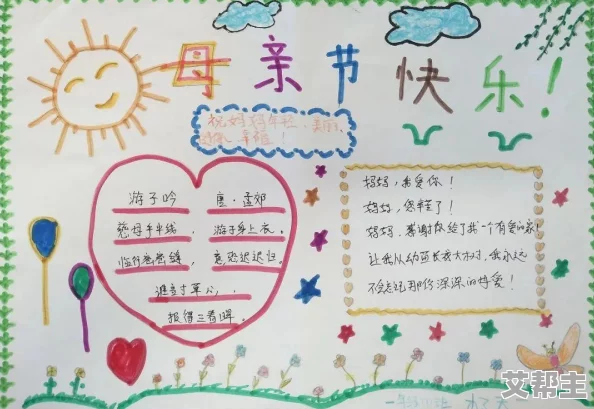 母亲节快乐!
祝妈妈年轻、美丽、
游子吟 唐·孟郊
慈母手中线, 游子身上衣。
临行密密缝, 意恐迟迟归。
谁言寸草心,
报得三春晖。
妈妈,我爱你!
妈妈,您辛苦了!
妈妈,感谢你给了我一个有爱的家!
让我从幼苗长成大树,我永远
不会忘记那份深深的母爱!
艾帮主